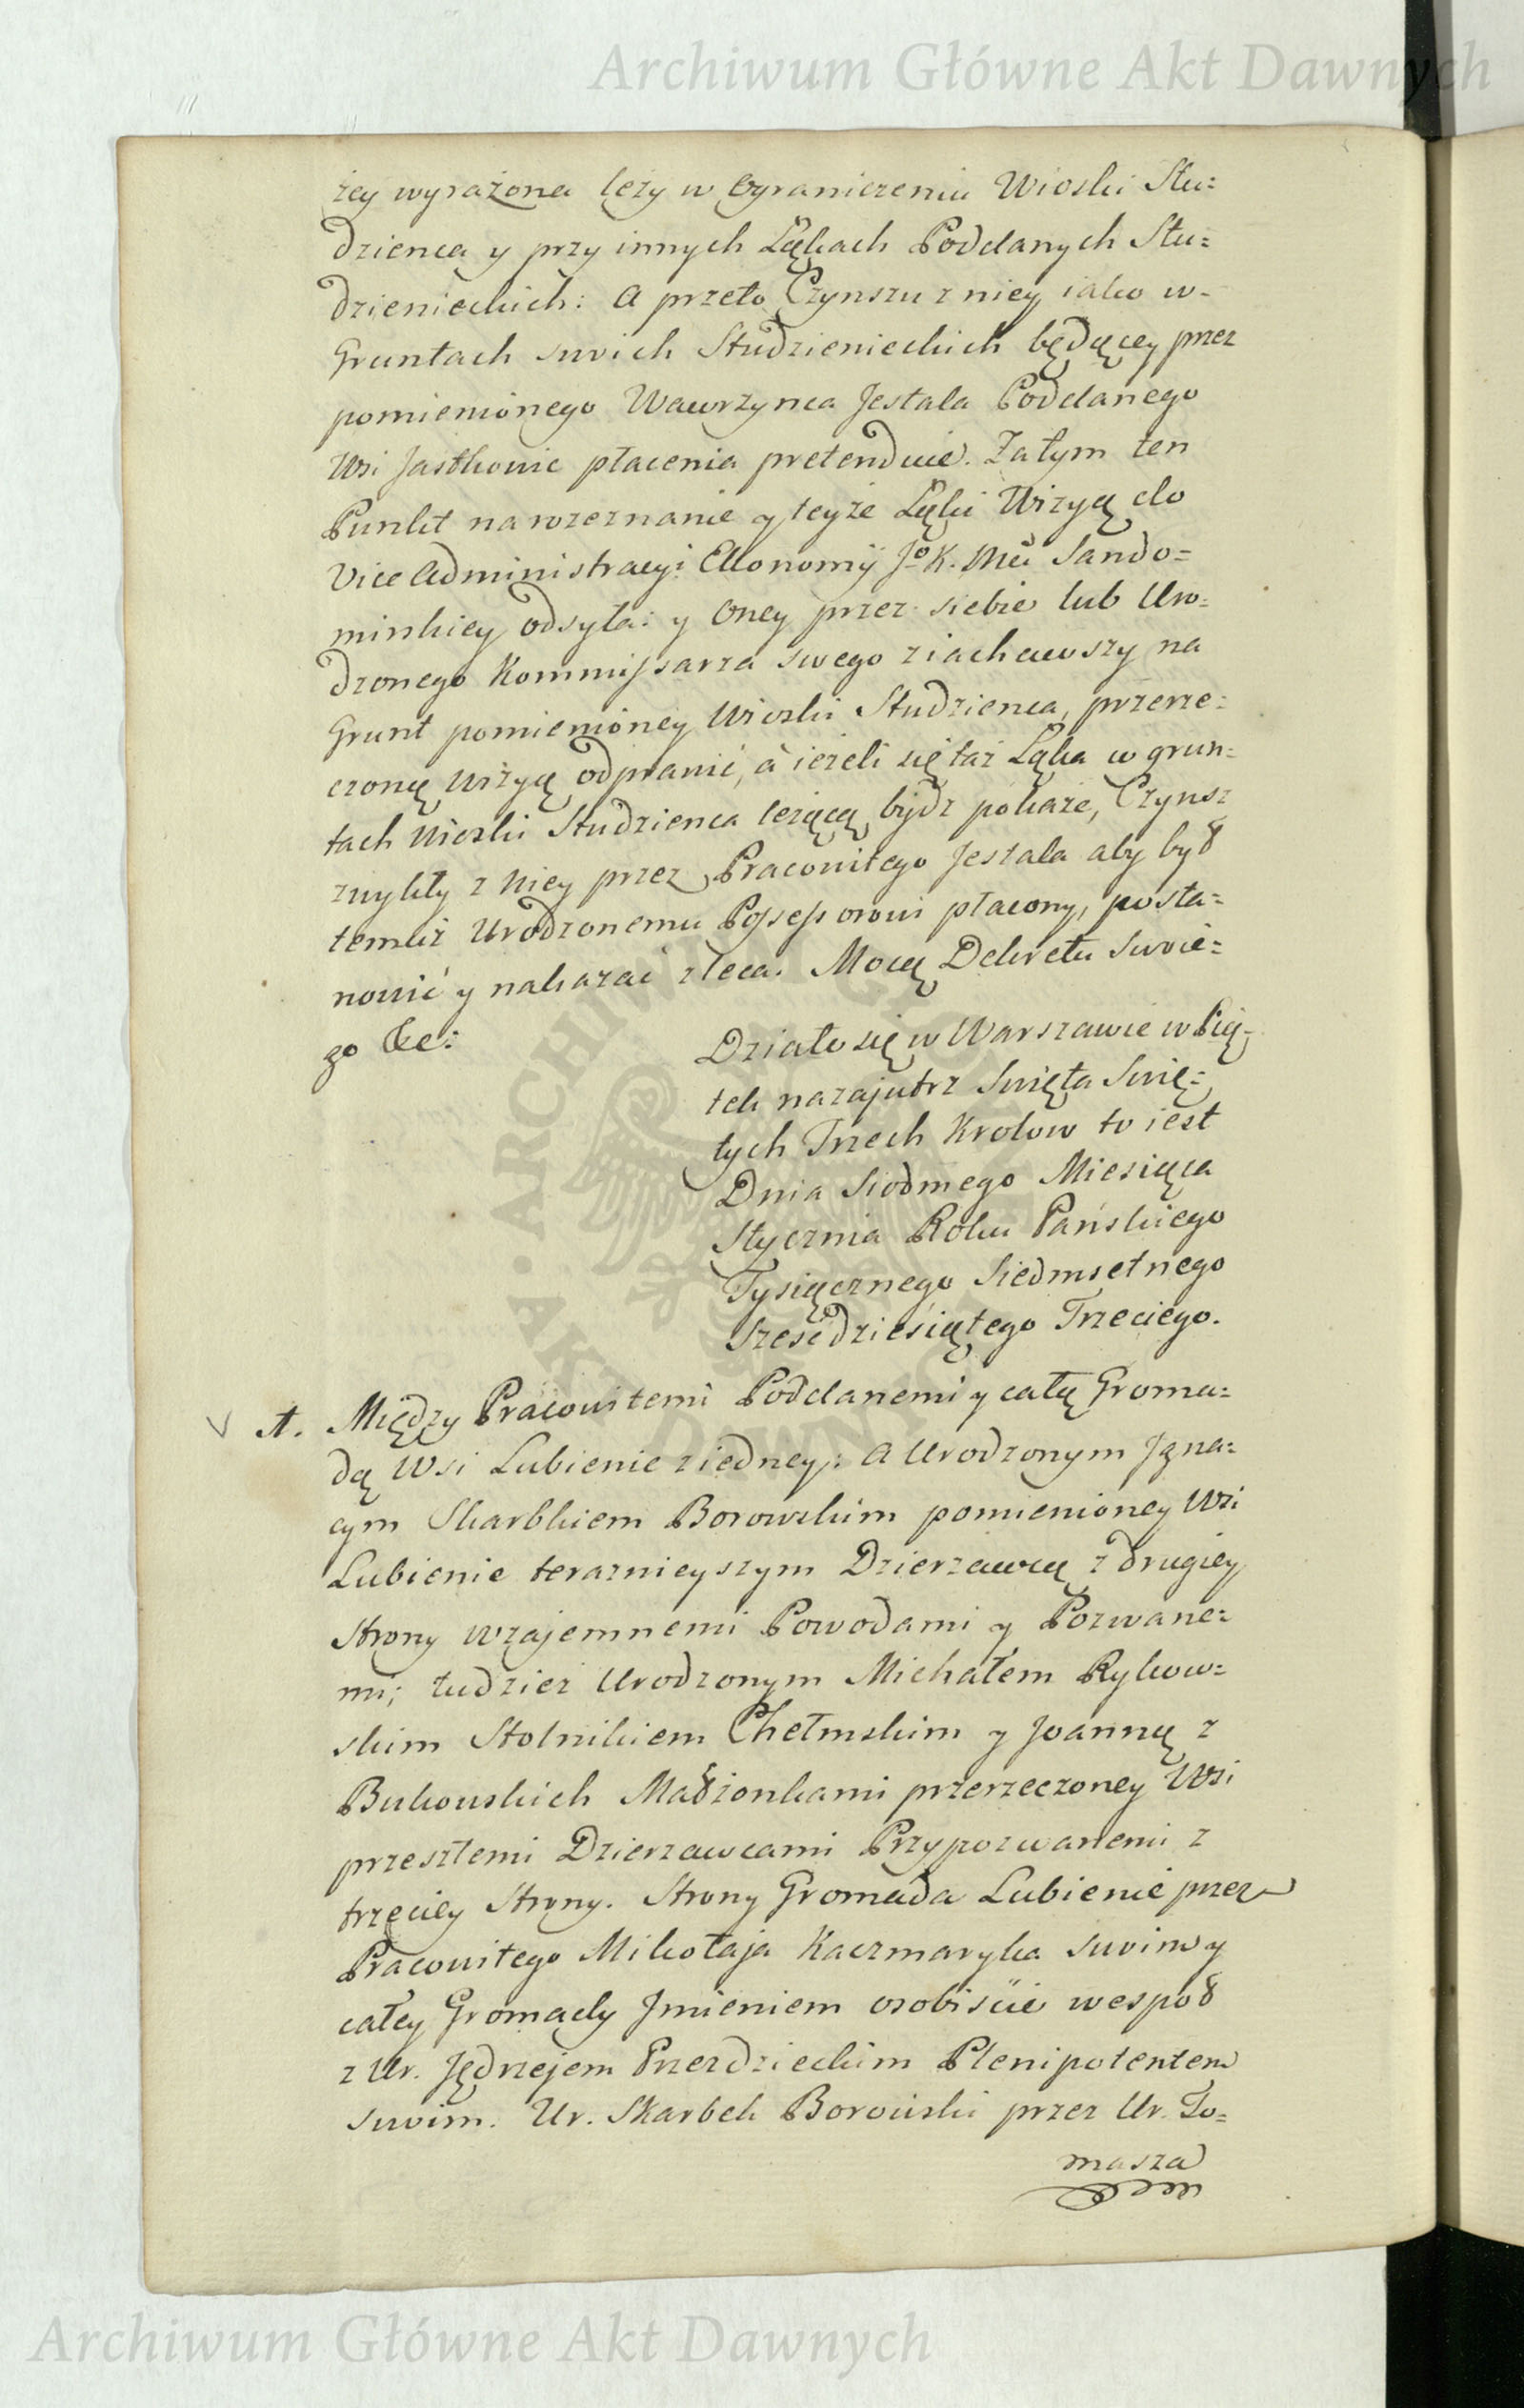 Archiwum Główne Akt Dawnych
żey wyrażona leży w Ograniczeniu Wioski Stu=
dzienca y przy innych Łąkach Poddanych Stu=
dzienieckich: A przeto Czynszu z niey iako w-
Gruntach swich Studzienieckich będącey przez
pomienionego Wawrzynca Jestala Poddanego
Wsi Jastkowic płacenia pretenduie. Zatym ten
Punkt na rozeznanie y teyże Łąki Wizyą do
Vice Administracyi Ekonomij Jo K. Mci Sando=
mirskiey odsyła: y Oney przez siebie lub Uro=
dzonego Kommissarza swego ziachawszy na
Grunt pomienioney Wioski Studzienca, przerze=
czoną Wizyą odprawić, à ieżeli się taż Łąka w grun=
tach Wioski Studzienca leżącą bydz pokaże, Czynsz
zwykły z Niey przez Pracowitego Jestala aby był
temuż Urodzonemu Possessorowi płacony, posta=
nowić y nakazać zleca. Mocą Dekretu swoie=
go &c:
Działo się w Warszawie w Pią=
tek nazajutrz Swięta Swię=
tych Trzech Krolow to iest
Dnia Siodmego Miesiąca
Stycznia Roku Pańskiego
Tysiącznego Siedmsetnego
Szescdziesiątego Trzeciego.
A. Między Pracowitemi Poddanemi y całą Groma=
dą Wsi Lubienie z iedney: A Urodzonym Igna=
cym Skarbkiem Borowskim pomienioney Wsi
Lubienie terazniejszym Dzierzawcą z drugiey
Strony wzajemnemi Powodami y Pozwane=
mi; tudziez Urodzonym Michałem Rykow=
skim Stolnikiem Chełmskim y Joanną z
Bukowskich Małżonkami przerzeczoney Wsi
przeszłemi Dzierzawcami Przypozwanemi z
trzeciey Strony. Strony Gromada Lubienie przez
Pracowitego Mikołaja Kaczmaryka swoim y
całey Gromady Jmieniem osobiscie wespoł
z Ur. Jędrzejem Przezdzieckim Plenipotentem
swoim. Ur. Skarbek Borowski przez Ur. To=
masza
Archiwum Główne Akt Dawnych